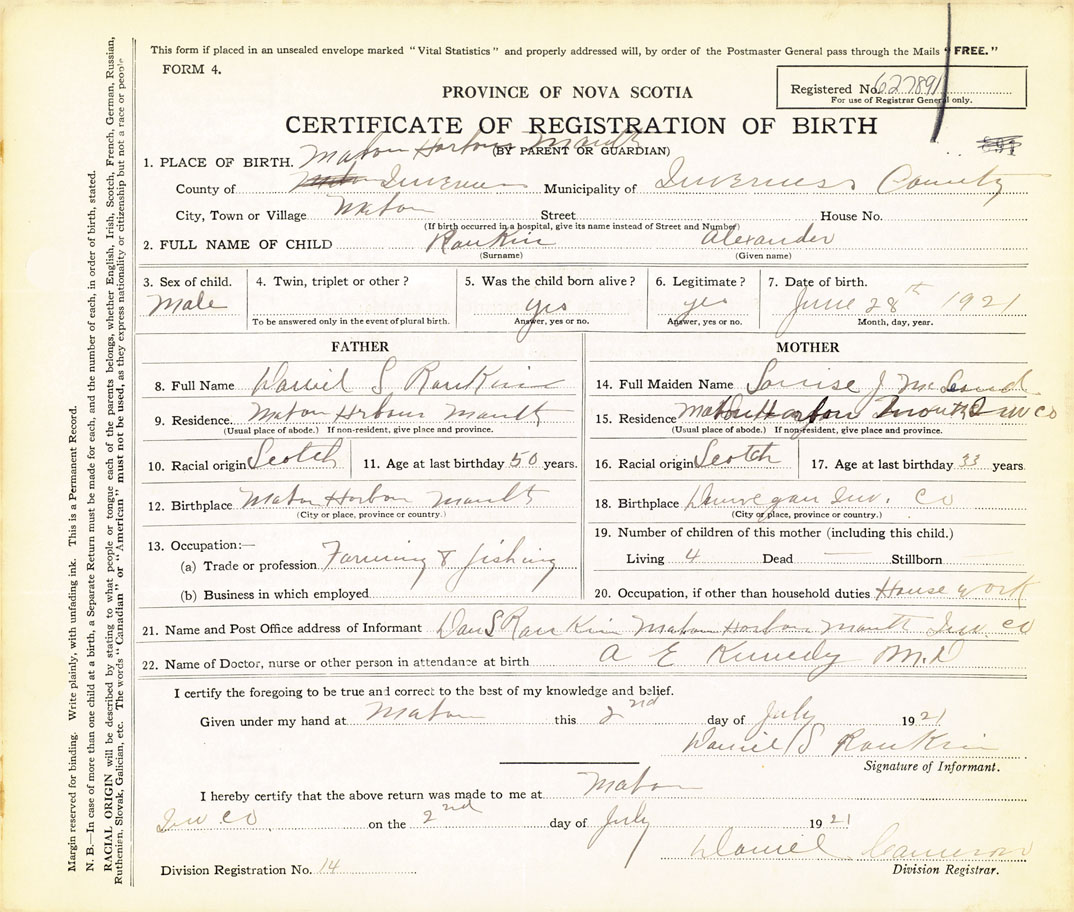 This form if placed in an unsealed envelope marked "Vital Statistics" and properly addressed will, by order of the Postmaster General pass through the Mails "FREE."
FORM 4.
Registered No. 627891
For use of Registrar General only.
PROVINCE OF NOVA SCOTIA
CERTIFICATE OF REGISTRATION OF BIRTH
(BY PARENT OR GUARDIAN)
1. PLACE OF BIRTH. Mabou Harbour Mouth
County of Inverness Municipality of Inverness County
City, Town or Village Mabou Street House No.
(If birth occurred in a hospital, give its name instead of Street and Number)
2. FULL NAME OF CHILD Rankin Alexander
(Surname) (Given name)
3. Sex of child. 4. Twin, triplet or other? 5. Was the child born alive? 6. Legitimate? 7. Date of birth.
Male yes yes June 28th 1921
To be answered only in the event of plural birth. Answer, yes or no. Answer, yes or no. Month, day, year.
FATHER
8. Full Name Daniel S Rankin
9. Residence. Mabou Hrbour Mouth
(Usual place of abode.) If non-resident, give place and province.
10. Racial origin Scotch 11. Age at last birthday 50 years.
12. Birthplace Mabou Harbour Mouth
(City or place, province or country.)
13. Occupation:—
(a) Trade or profession. Farming & fishing
(b) Business in which employed
MOTHER
14. Full Maiden Name Louise J
15. Residence Mabou Harbour Mouth Inv Co
(Usual place of abode.) If non-resident, give place and province.
16. Racial origin Scotch 17. Age at last birthday 33 years
18. Birthplace Dunvegan Inv. Co
(City or place, province or country.)
19. Number of children of this mother (including this child.)
Living 4 Dead Stillborn
20. Occupation, if other than household duties House work
21. Name and Post Office address of Informant Dan S Rankin Mabou Harbour Mouth Inv. Co
22. Name of Doctor, nurse or other person in attendance at birth A E Kennedy M.D
I certify the foregoing to be true and correct to the best of my knowledge and belief.
Given under my hand at Mabou this 2nd day of July 1921
Daniel S Rankin
Signature of Informant.
I hereby certify that the above return was made to me at Mabou
Inv Co on the 2nd day of July 1921
Daniel Cameron
Division Registration No. 14 Division Registrar.
Margin reserved for binding. Write plainly, with unfading ink. This is a Permanent Record.
N. B.—In case of more than one child at a birth, a Separate Return must be made for each, and the number of each, in order of birth, stated.
RACIAL ORIGIN will be described by stating to what people or tongue each of the parents belongs, whether English, Irish, Scotch, French, German, Russian,
Ruthenien, Slovak, Galician, etc. The words "Canadian" or "American" must not be used, as they express nationality or citizenship but not a race or people